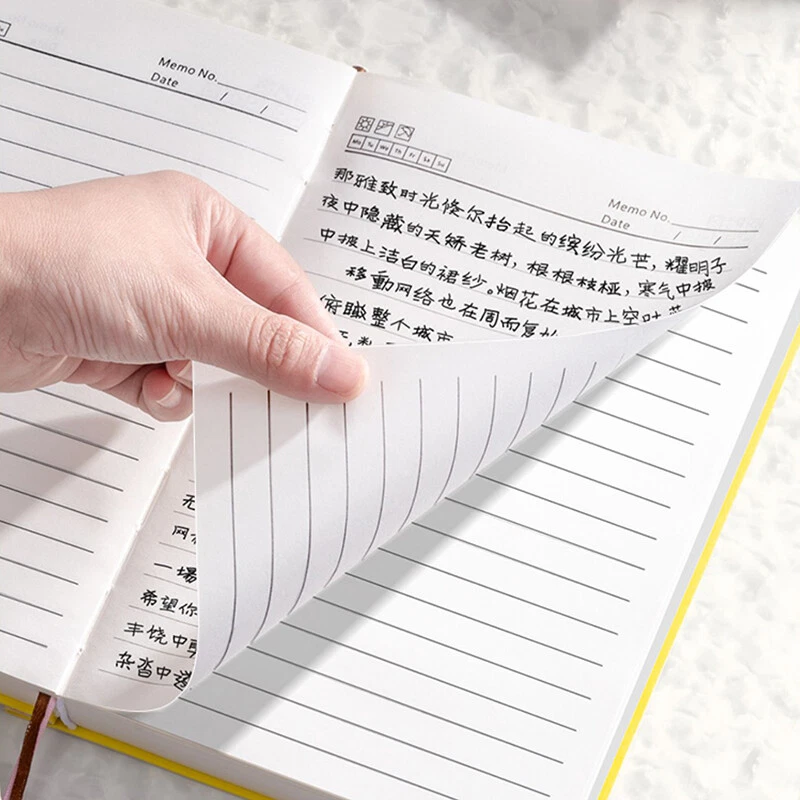 Memo No.
Date / /
Memo No.
Date / /
Mo Tu We Th Fr Sa Su
那雅致时光倏尔抬起的缤纷光芒，耀明子
夜中隐藏的天娇老树，根根枝桠，寒气中披
中披上洁白的裙纱。烟花在城市上空吐
移動网络也在周而复
俯瞰整个城市
无
网
一場
希望你
丰饶中
杂沓中